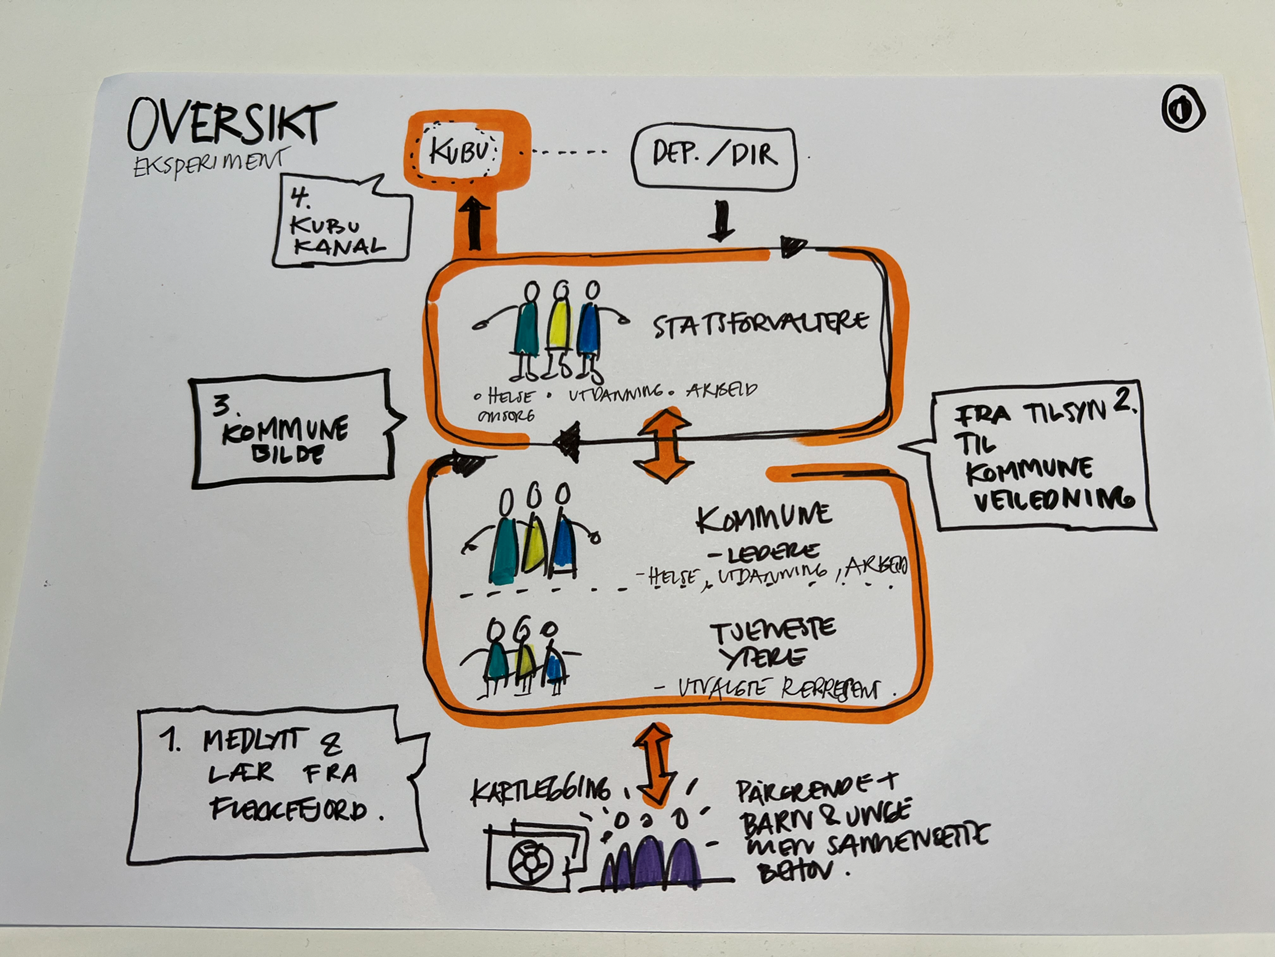 OVERSIKT
EKSPERIMENT
0
KUBU
DEP. / DIR
4.
KUBU
KANAL
STATSFORVALTERE
• HELSE • UTDANNING • ARBEID
OMSORG
3.
KOMMUNE
BILDE
2.
FRA TILSYN
TIL
KOMMUNE
VEILEDNING
KOMMUNE
- LEDERE
- HELSE, UTDANNING, ARBEID
TJENESTE
YTERE
- UTVALGTE
1. MEDLYTT &
LÆR FRA
FLEKKEFJORD.
KARTLEGGING
PÅRØRENDE +
BARN & UNGE
MEN SAMMENSETTE
BEHOV.